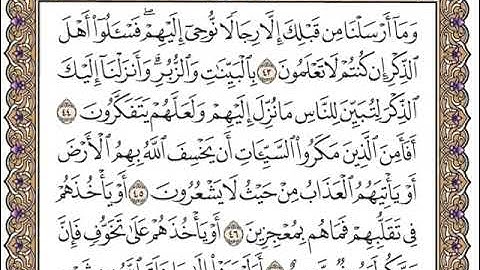 وَمَآ أَرْسَلْنَا مِن قَبْلِكَ إِلَّا رِجَالًا نُّوحِىٓ إِلَيْهِمْ ۖ فَسْـَٔلُوٓا۟ أَهْلَ
ٱلذِّكْرِ إِن كُنتُمْ لَا تَعْلَمُونَ ٤٣ بِٱلْبَيِّنَـٰتِ وَٱلزُّبُرِ ۗ وَأَنزَلْنَآ إِلَيْكَ
ٱلذِّكْرَ لِتُبَيِّنَ لِلنَّاسِ مَا نُزِّلَ إِلَيْهِمْ وَلَعَلَّهُمْ يَتَفَكَّرُونَ ٤٤
أَفَأَمِنَ ٱلَّذِينَ مَكَرُوا۟ ٱلسَّيِّـَٔاتِ أَن يَخْسِفَ ٱللَّهُ بِهِمُ ٱلْأَرْضَ
أَوْ يَأْتِيَهُمُ ٱلْعَذَابُ مِنْ حَيْثُ لَا يَشْعُرُونَ ٤٥ أَوْ يَأْخُذَهُمْ
فِى تَقَلُّبِهِمْ فَمَا هُم بِمُعْجِزِينَ ٤٦ أَوْ يَأْخُذَهُمْ عَلَىٰ تَخَوُّفٍ فَإِنَّ